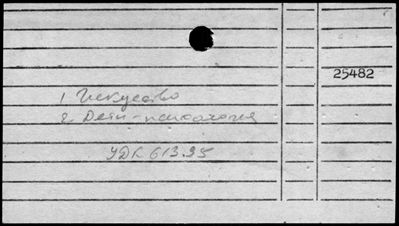 25482
1. Искусство
2. Дети - психология
УДК 613.95